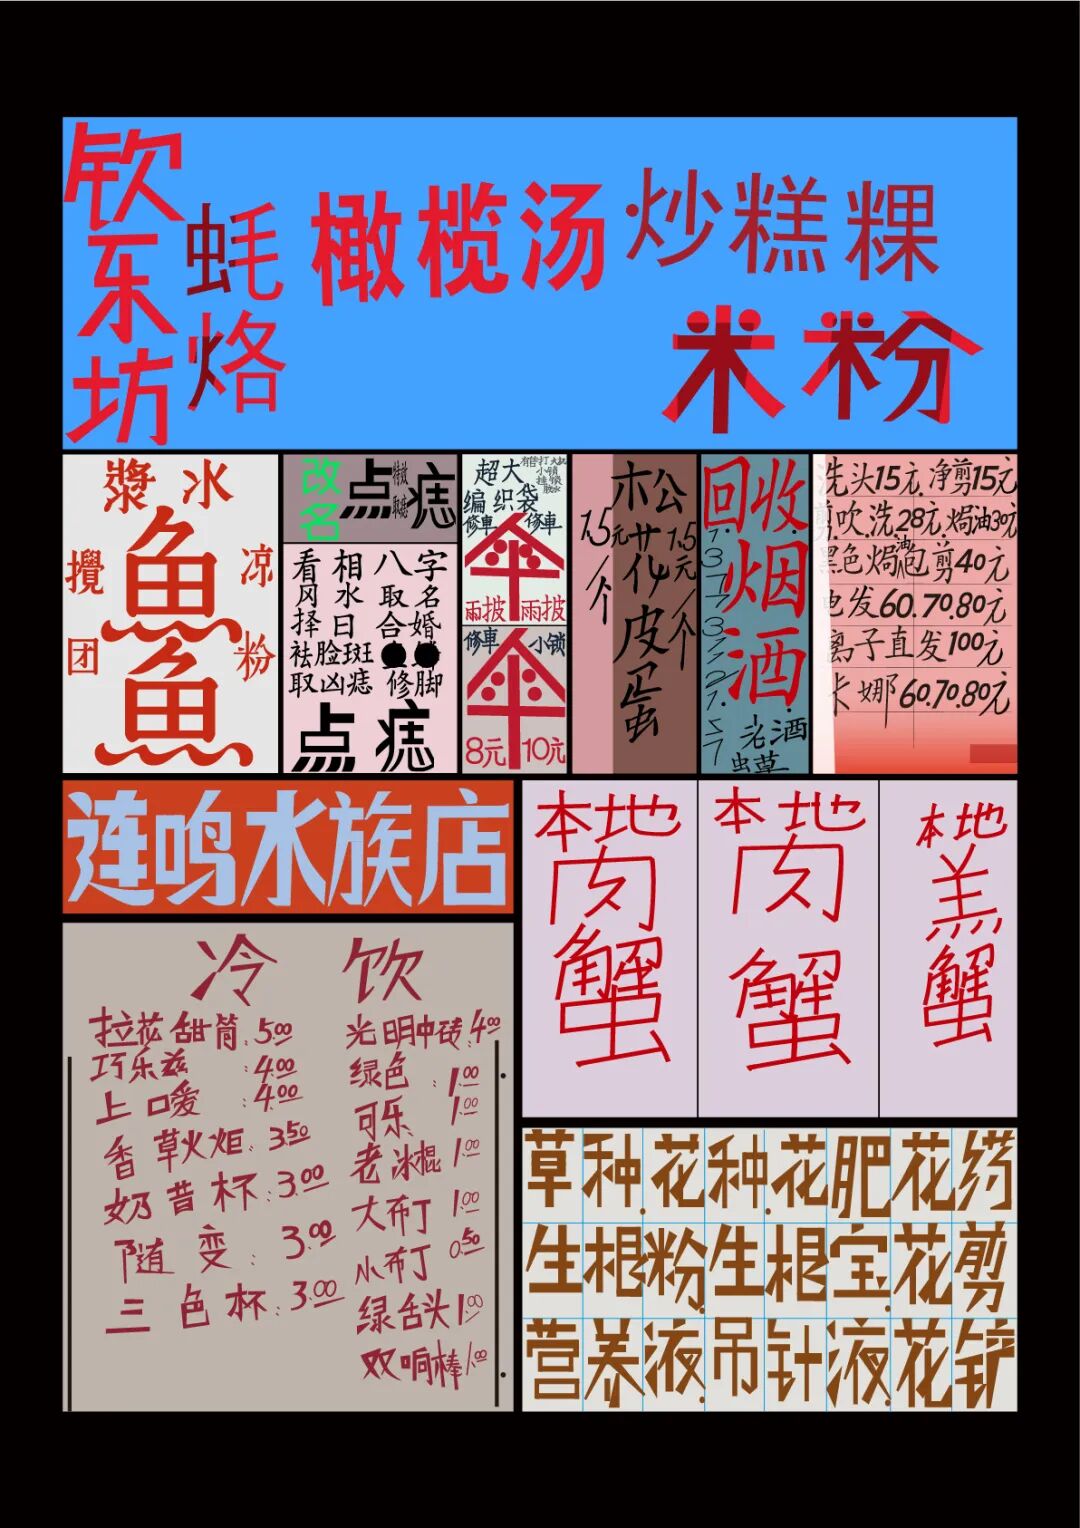 钦东坊
蚝烙
橄榄汤
炒糕粿
米粉
漿水
攪团
鱼鱼
凉粉
改名
点痣
看相八字
风水取名
择日合婚
祛脸斑
取凶痣 修脚
点痣
超大
编织袋
修車 修車
伞
雨披 雨披
修車 小锁
伞
8元 10元
1.5元/个
松花皮蛋
1.5元/个
回收
烟酒
老酒
虫草
洗头15元.净剪15元
剪吹.洗28元.焗油30元
黑色焗油包剪40元
电发60.70.80元
离子直发100元
卡娜60.70.80元
连鸣水族店
本地肉蟹
本地肉蟹
本地羔蟹
冷饮
拉花甜筒:5.00
巧乐兹:4.00
上口爱:4.00
香草火炬:3.50
奶昔杯:3.00
随变:3.00
三色杯:3.00
光明中砖:4.00
绿色:1.00
可乐1.00
老冰棍1.00
大布丁1.00
小布丁0.50
绿舌头1.00
双响棒1.00
草种.花种.花肥花药
生根粉.生根宝.花剪
营养液.吊针液.花铲